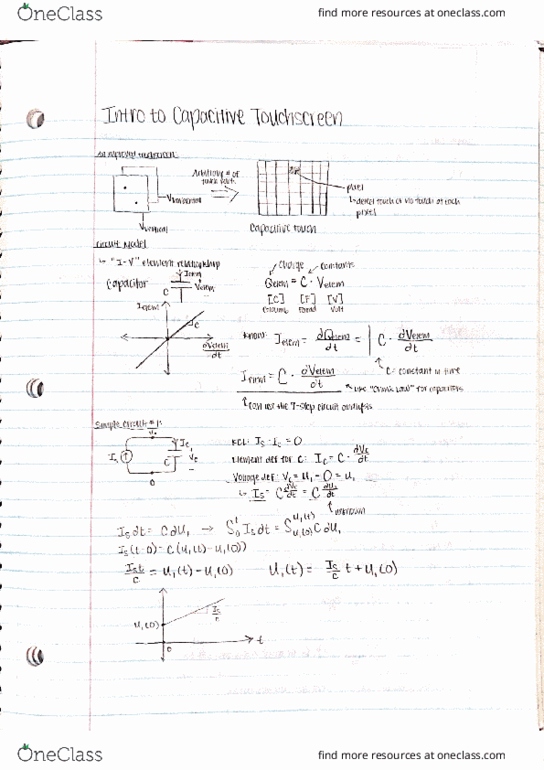 OneClass
find more resources at oneclass.com
Intro to Capacitive Touchscreen
Arbitrary # of
touch
V horizontal
V vertical
pixel
↳ detect touch or no touch at each
pixel
capacitive touch
circuit model
↳ "I-V" element relationship
Capacitor
C
I elem
V elem
charge
constants
Q elem = C · V elem
[C] [F] [V]
Farad Volt
I elem
C
dV elem
dt
know: I elem = dQ elem/dt = C · dV elem/dt
C = constant in time
I elem = C · dV elem/dt
use "Ohm's Law" for capacitors
↑ can use the 7-step circuit analysis
Simple circuit #1
u₁
I_s
C
I_c
V_c
0
KCL: I_s - I_c = 0
Element def for C: I_c = C · dV_c/dt
Voltage def: V_c = u₁ - 0 = u₁
↳ I_s = C dV_c/dt = C du₁/dt
unknown
I_s dt = C du₁ → ∫₀ᵗ I_s dt = ∫_{u₁(0)}^{u₁(t)} C du₁
I_s(t-0) = C(u₁(t) - u₁(0))
I_s t/C = u₁(t) - u₁(0) u₁(t) = I_s/C t + u₁(0)
u₁(0)
I_s/C
0
t
OneClass
find more resources at oneclass.com